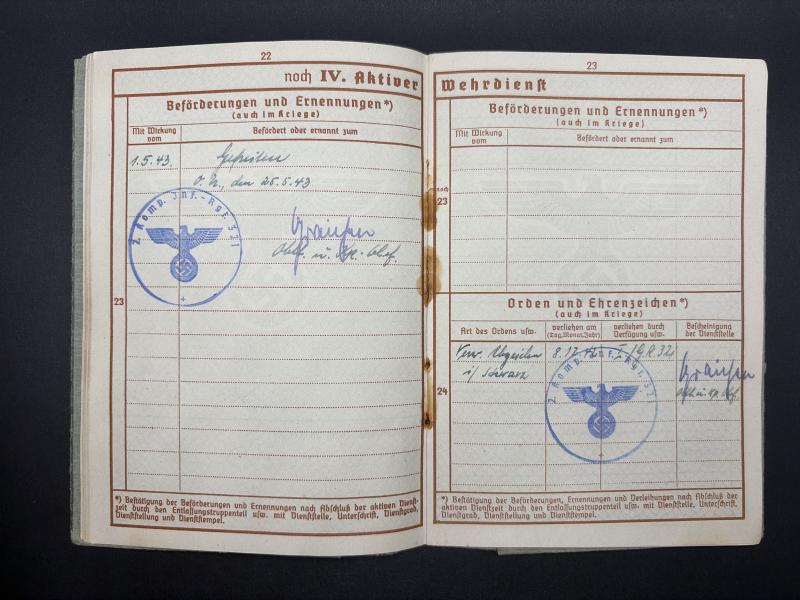 22
noch IV. Aktiver
Beförderungen und Ernennungen*)
(auch im Kriege)
Mit Wirkung
vom
Befördert oder ernannt zum
1.5.43.
Gefreiten
O.U., den 25.5.43
2. Komp. Inf.-Rgt. 321
Oblt. u. Kp. Chef.
23
*) Bestätigung der Beförderungen und Ernennungen nach Abschluß der aktiven Dienst-
zeit durch den Entlassungstruppenteil usw. mit Dienststelle, Unterschrift, Dienstgrad,
Dienststellung und Dienststempel.
23
Wehrdienst
Beförderungen und Ernennungen*)
(auch im Kriege)
Mit Wirkung
vom
Befördert oder ernannt zum
noch
23
Orden und Ehrenzeichen*)
(auch im Kriege)
Art des Ordens usw.
verliehen am
(Tag, Monat, Jahr)
verliehen durch
Verfügung usw.
Bescheinigung
der Dienststelle
Verw. Abzeichen
i/ Schwarz
8.12.42
2. Komp. Inf.-Rgt. 321
24
*) Bestätigung der Beförderungen, Ernennungen und Verleihungen nach Abschluß der
aktiven Dienstzeit durch den Entlassungstruppenteil usw. mit Dienststelle, Unterschrift,
Dienstgrad, Dienststellung und Dienststempel.